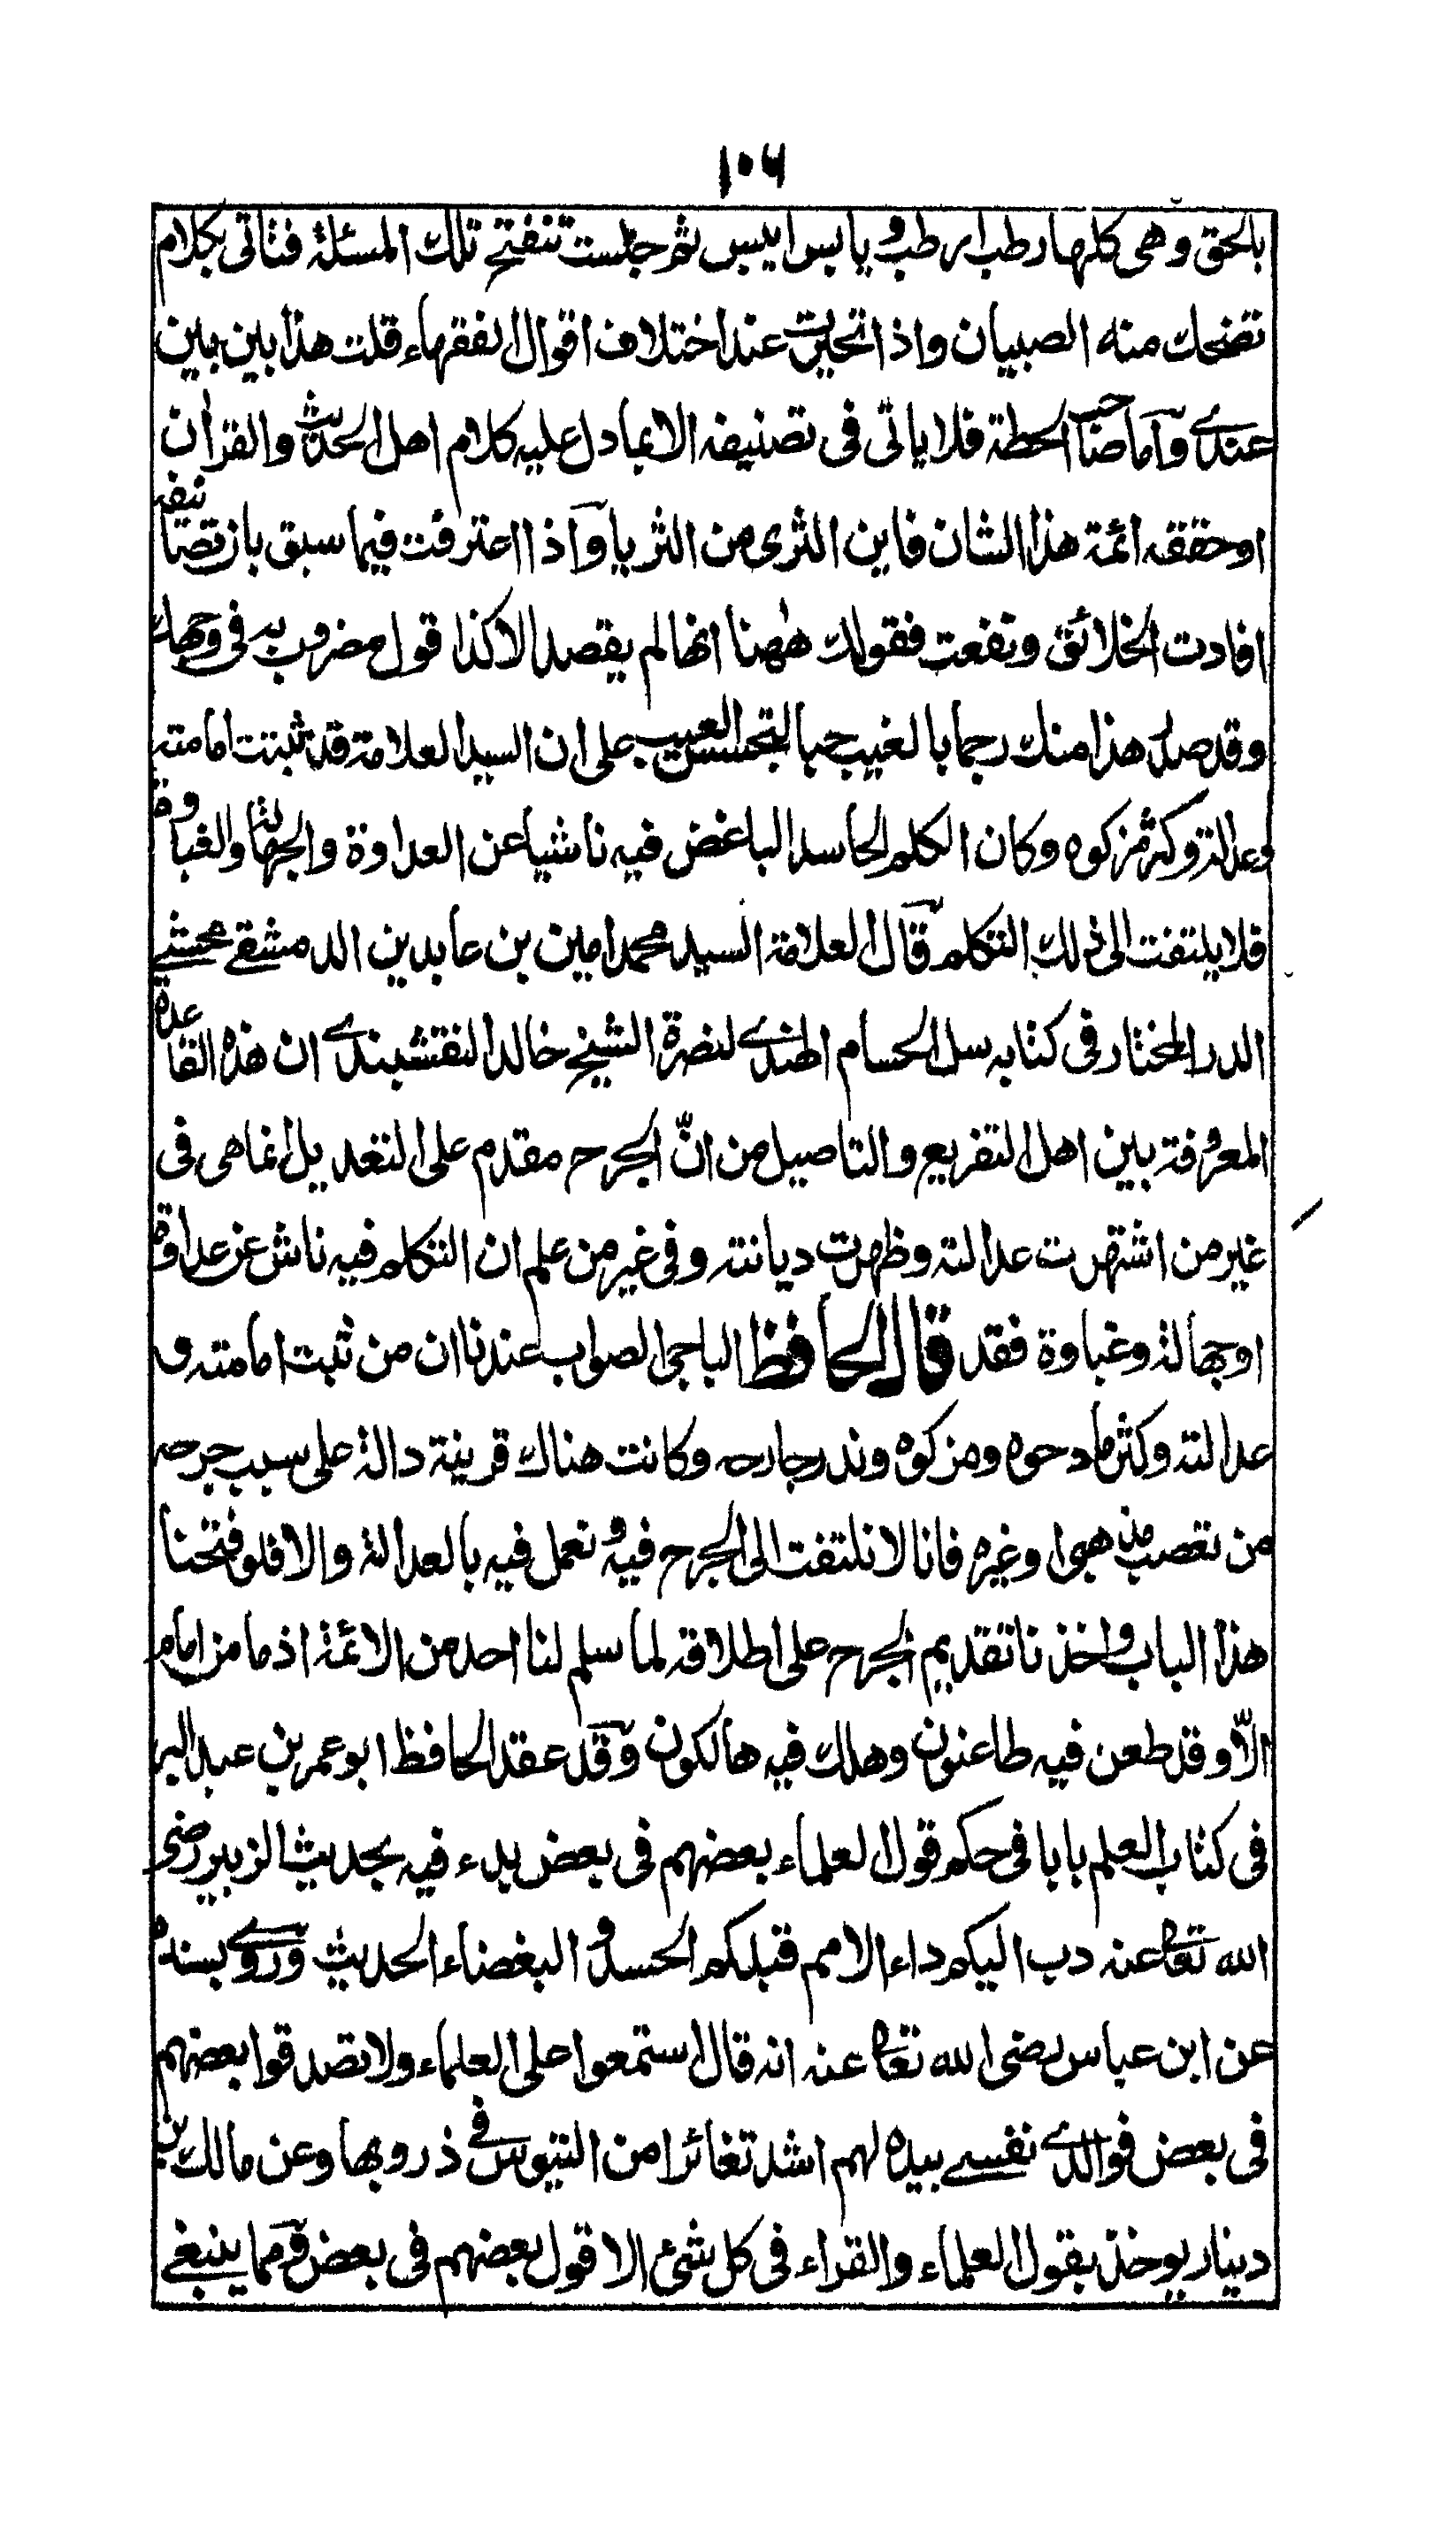 ١٠٦
بالحق وهى كلها رطب ارطب ويابس ايبس ثم جلست تنفتح تلك المسئلة فتاتى بكلام
تضحك منه الصبيان واذا تحيرت عند اختلاف اقوال الفقهاء قلت هذا بين بين
عندى وآما صاحب الحطة فلا ياتى فى تصنيفه الا بما دل عليه كلام اهل الحديث والقرآن
اوحققه ائمة هذا الشان فاين الثرى من الثريا وآذا اعترفت فيما سبق بان تصانيفه
افادت الخلائق ونفعت فقولك ههنا انها لم يقصد الا كذا قول مضروب به فى وجهك
وقد صدر هذا منك رجما بالغيب حبا لتجسس العيب على ان السيد العلامة قد ثبتت امامته
وعدالته وكثر مزكوه وكان الكلم الحاسد الباغض فيه ناشيا عن العداوة والجهالة والغباوة
فلا يلتفت الى ذلك التكلم قآل العلامة السيد محمد امين بن عابدين الدمشقے محشے
الدر المختار فى كتابه سل الحسام الهندے لنصرة الشيخ خالد النقشبندے ان هذه القاعدة
المعروفة بين اهل التفريع والتاصيل من انّ الجرح مقدم على التعديل انما هى فى
غير من اشتهرت عدالته وظهرت ديانته وفى غير من علم ان التكلم فيه ناش عن عداوة
اوجهالة وغباوة فقد قال الحافظ الباجى الصواب عندنا ان من ثبت امامته و
عدالته وكثر مادحوه ومزكوه وندر جارحه وكانت هناك قرينة دالة على سبب جرحه
من تعصب مذهبى اوغيره فانا لا نلتفت الى الجرح فيه ونعمل فيه بالعدالة والا فلو فتحنا
هذا الباب واخذنا تقديم الجرح على اطلاقه لما سلم لنا احد من الائمة اذ ما من امام
الّا وقد طعن فيه طاعنون وهلك فيه هالكون وقٓد عقد الحافظ ابو عمر بن عبد البر
فى كتاب العلم بابا فى حكم قول العلماء بعضهم فى بعض بدء فيه بحديث الزبير رضى
الله تعالى عنه دب اليكم داء الامم قبلكم الحسد والبغضاء الحديث وروے بسنده
عن ابن عباس رضى الله تعالى عنه انه قال استمعوا على العلماء ولا تصدقوا بعضهم
فى بعض فوالذے نفسے بيده لهم اشد تغائرا من التيوس فے ذروبها وعن مالك بن
دينار يوخذ بقول العلماء والقراء فى كل شئ الا قول بعضهم فى بعض وٓمما ينبغے